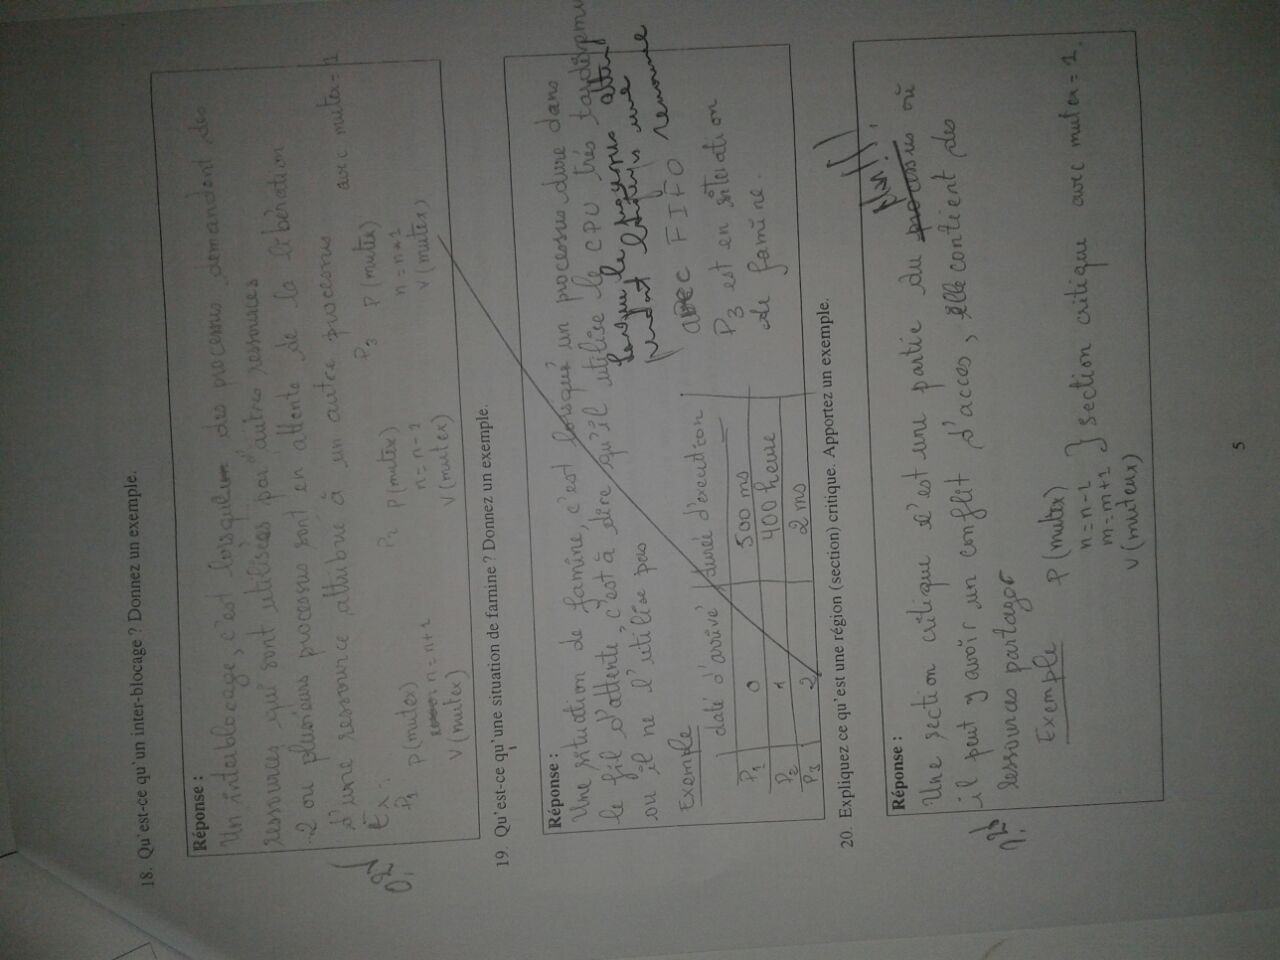 18. Qu'est-ce qu'un inter-blocage ? Donnez un exemple.
Réponse :
Un interblocage, c'est lorsque des processus demandent des
ressources qui sont utilisées par autres ressources
2 ou plusieurs processus sont en attente de la libération
d'une ressource attribué à un autre processus
Ex : avec mutex = 1
P1 P(mutex) P2 P(mutex) P3 P(mutex)
n = n+1 n = n-1
V(mutex) V(mutex) V(mutex)
0,25
19. Qu'est-ce qu'une situation de famine ? Donnez un exemple.
Réponse :
Une situation de famine, c'est lorsqu'un processus dure dans
le fil d'attente, c'est à dire qu'il utilise le CPU trés
ou il ne l'utilise pas
Lorsque le processus attend
pendant longtemps une
Exemple
date d'arrivé durée d'execution
P1 0 500 ms
P2 1 400 heure
P3 2 2 ms
avec FIFO
P3 est en sitération
de famine.
20. Expliquez ce qu'est une région (section) critique. Apportez un exemple.
Réponse :
Une section critique c'est une partie du processus où
il peut y avoir un conflit d'acces, elle contient des
ressources partager
Exemple P(mutex)
n = n-1
m = m+1 } section critique avec mutex = 1.
V(muteux)
5